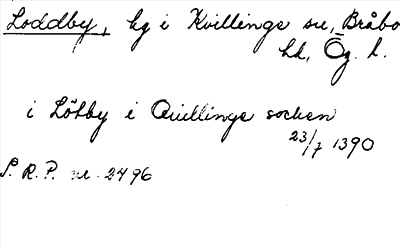 Loddby, hg i Kvillinge sn, Bråbo
hd, Ög. l.
i Lötby i Quillinge socken
23/7 1390
S. R. P. nr. 2496